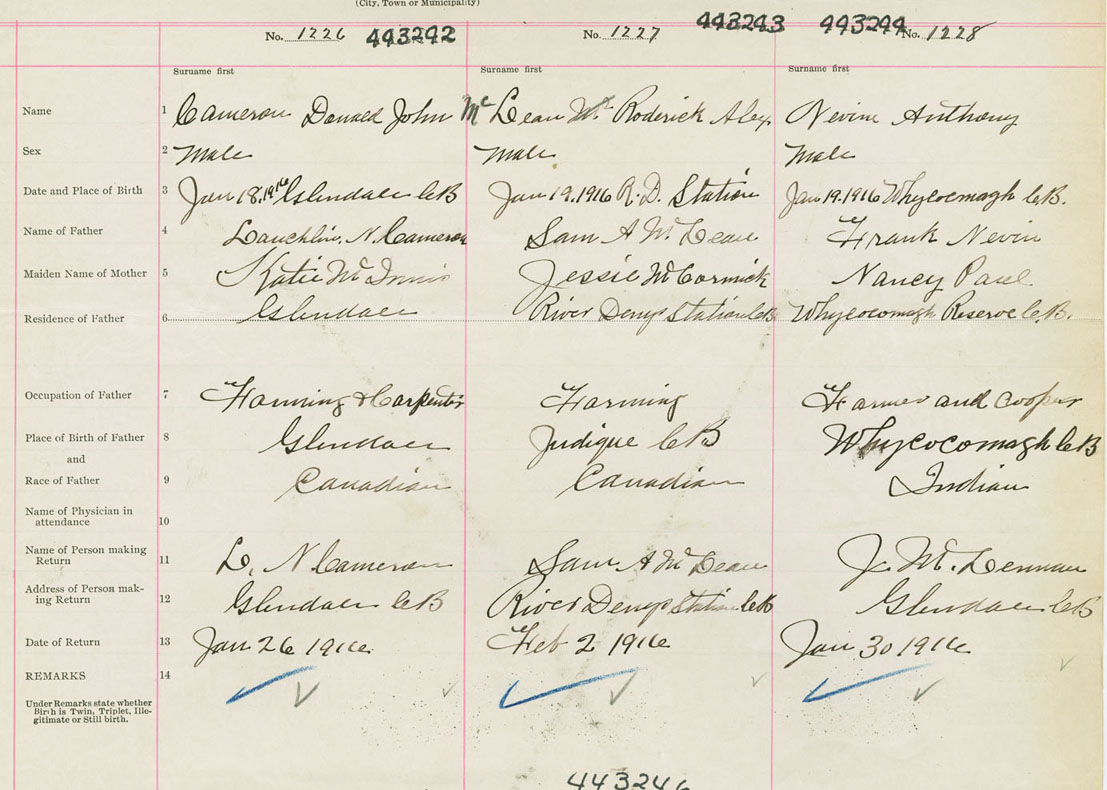 (City, Town or Municipality)
No. 1226 443242 No. 1227 443243 443244 No. 1228
Surname first Surname first Surname first
Name 1 Cameron Donald John McLean Mc Roderick Alex. Nevine Anthony
Sex 2 Male Male Male
Date and Place of Birth 3 Jan 18.1916 Glendale C.B Jan 19.1916 R.D. Station Jan 19.1916 Whycocomagh C.B.
Name of Father 4 Lauchlin N. Cameron Sam A McLean Frank Nevin
Maiden Name of Mother 5 Katie McInnis Jessie McCormick Nancy Paul
Residence of Father 6 Glendale River Denys Station C.B Whycocomagh Reserve C.B.
Occupation of Father 7 Farming & Carpenter Farming Farmer and Cooper
Place of Birth of Father 8 Glendale Judique C B Whycocomagh C.B
and
Race of Father 9 Canadian Canadian Indian
Name of Physician in
attendance 10
Name of Person making
Return 11 L. N Cameron Sam A McLean J. McLennan
Address of Person mak-
ing Return 12 Glendale C.B River Denys Station C.B Glendale C.B
Date of Return 13 Jan 26 1916. Feb 2 1916 Jan 30 1916
REMARKS 14
Under Remarks state whether
Birth is Twin, Triplet, Ille-
gitimate or Still birth.
443246